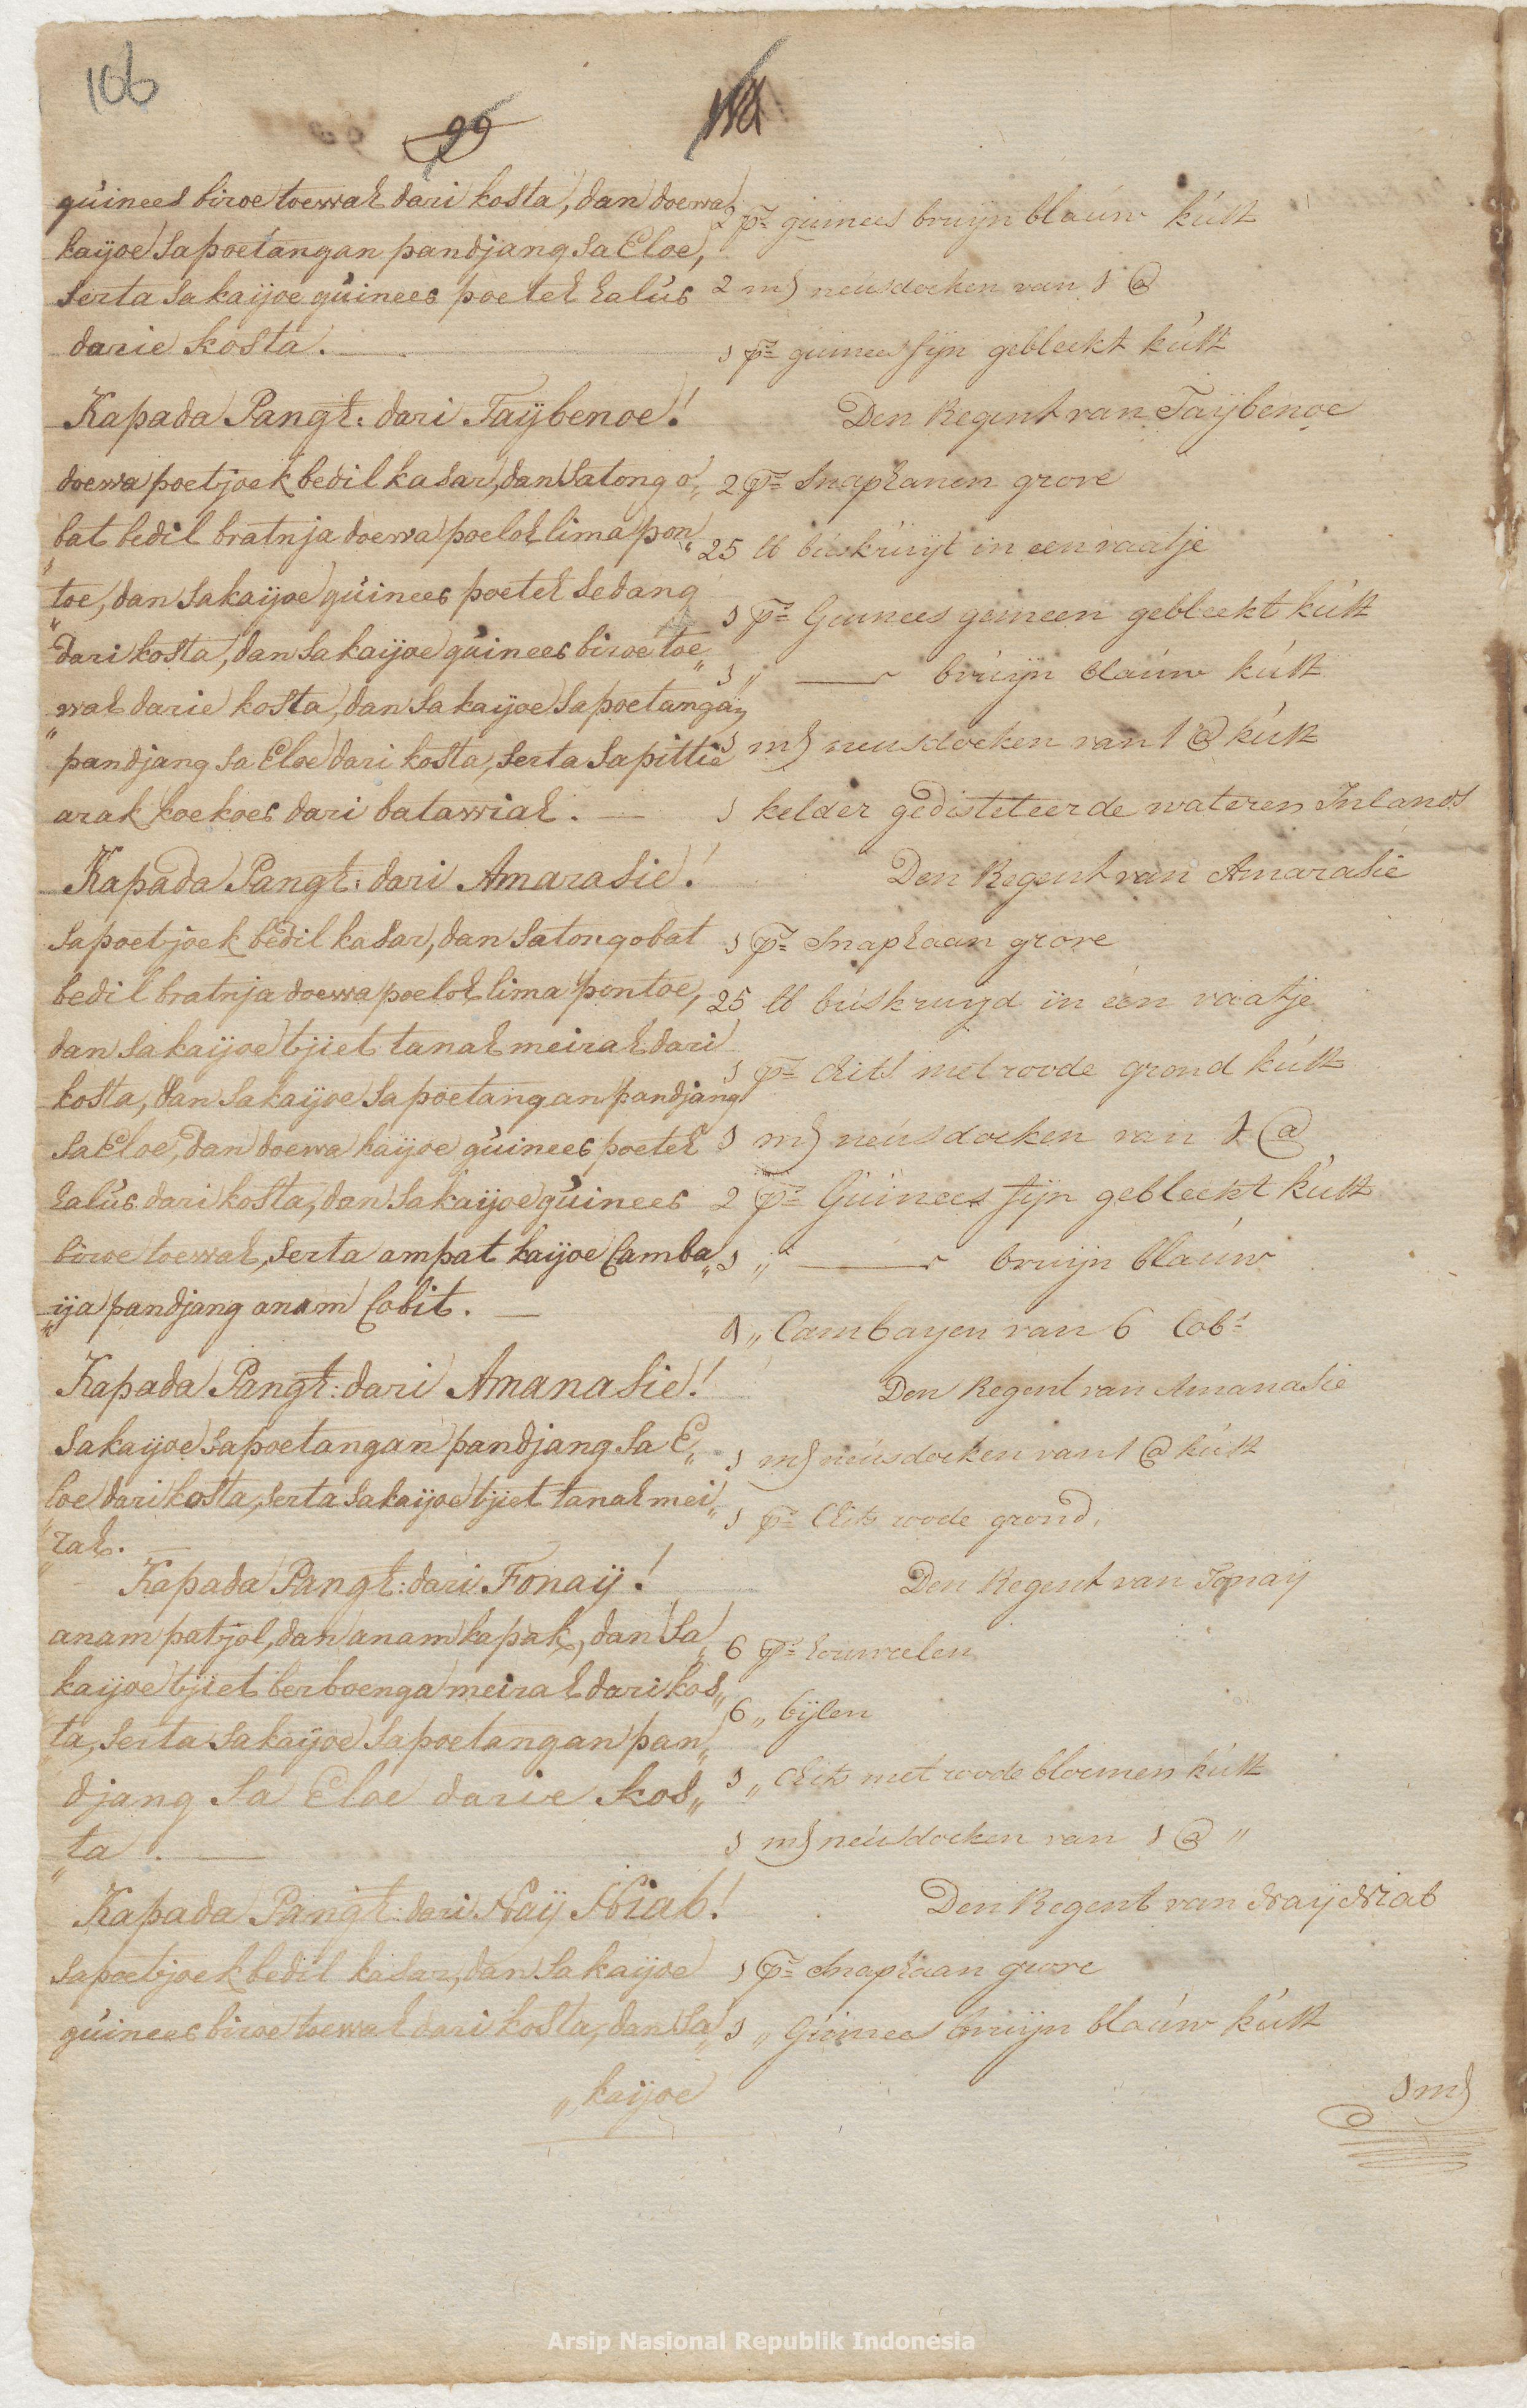 106
99
guinees biroe toewah dari kosta, dan doewa
kaijoe sapoetangan pandjang sa Eloe,
serta sa kaijoe guinees poeteh halus
darie kosta.
Kapada Pangt: dari Taijbenoe!
doewa poetjoek bedil kasar, dan satong o„
„bat bedil bratnja doewa poeloh lima pon„
„toe, dan sakaijoe guinees poeteh sedang
dari kosta, dan sa kaijoe guinees biroe toe„
„wah darie kosta, dan sa kaijoe sapoetangan
pandjang sa Eloe dari kosta, serta sapittie
arak koekoes dari batawiah.
Kapada Pangt: dari Amarasie!
sapoetjoek bedil kasar, dan satong obat
bedil bratnja doewa poeloh lima pontoe,
dan sa kaijoe tjiet tanah meirah dari
kosta, dan sa kaijoe sapoetangan pandjang
sa Eloe, dan doewa kaijoe guinees poeteh
halus dari kosta, dan sa kaijoe guinees
biroe toewah, serta ampat kaijoe Camba„
„ija pandjang anam Cobit.
Kapada Pangt: dari Amanasie!
sakaijoe sapoetangan pandjang sa E„
loe dari kosta, serta sakaijoe tjiet tanah mei„
„rah.
Kapada Pangt: dari Fonaij!
anam patjol, dan anam kapak, dan sa„
kaijoe tjiet berboenga meirah dari kos„
ta, serta sa kaijoe sapoetangan pan„
djang sa Eloe darie kos„
„ta.
Kapada Pangt: dari Naij Niab!
sapoetjoek bedil kasar, dan sa kaijoe
guinees biroe toewah dari kosta, dan sa„
„kaijoe
2 ps guinees bruijn blaúw kúst
2 m§ neúsdoeken van 1 @
1 ps guinees fijn gebleekt kúst
Den Regent van Taijbenoe
2 ps Snaphanen grove
25 lb búskruijt in een vaatje
1 ps Guinees gemeen gebleekt kúst
1 „ — bruijn blaúw kúst
1 m§ neusdoeken van 1 @ kúst
1 kelder gedisteleerde wateren Inlands
Den Regent van Amarasie
1 ps Snaphaan grove
25 lb búskruyd in één vaatje
1 ps Chits met roode grond kúst
1 m§ neúsdoeken van 1 @
2 ps Guinees fijn gebleekt kúst
1 „ — bruijn blaúw
4 „ Cambayen van 6 Cobs
Den Regent van Amanasie
1 m§ neúsdoeken van 1 @ kúst
1 ps Chits roode grond.
Den Regent van Fonaij
6 ps houweelen
6 „ bijlen
1 „ Chits met roode bloemen kúst
1 m§ neúsdoeken van 1 @ „
Den Regent van Naij Niab
1 ps Snaphaan grove
1 „ Guinees bruijn blaúw kúst
1 m§
Arsip Nasional Republik Indonesia